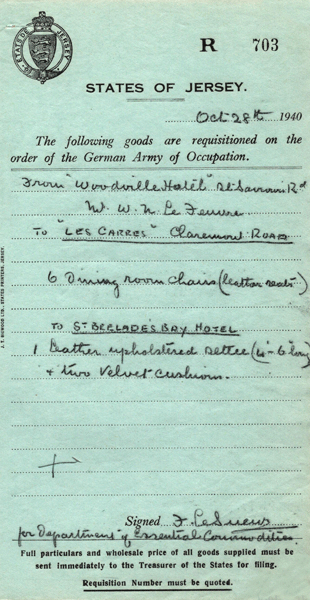 STATES OF JERSEY
R 703
STATES OF JERSEY.
Oct 28th 1940
The following goods are requisitioned on the
order of the German Army of Occupation.
From "Woodville Hotel" St. Saviours Rd
Mr. W. N. Le Feuvre
TO "LES CARRES" Claremont ROAD
6 Dining room chairs (leather seats)
TO ST BRELADES BAY HOTEL
1 Leather upholstered settee ( 6' long)
+ two Velvet cushions.
Signed F. Le Sueur
for Department of Essential Commodities
Full particulars and wholesale price of all goods supplied must be
sent immediately to the Treasurer of the States for filing.
Requisition Number must be quoted.
J. T. BIGWOOD LTD., STATES PRINTERS, JERSEY.